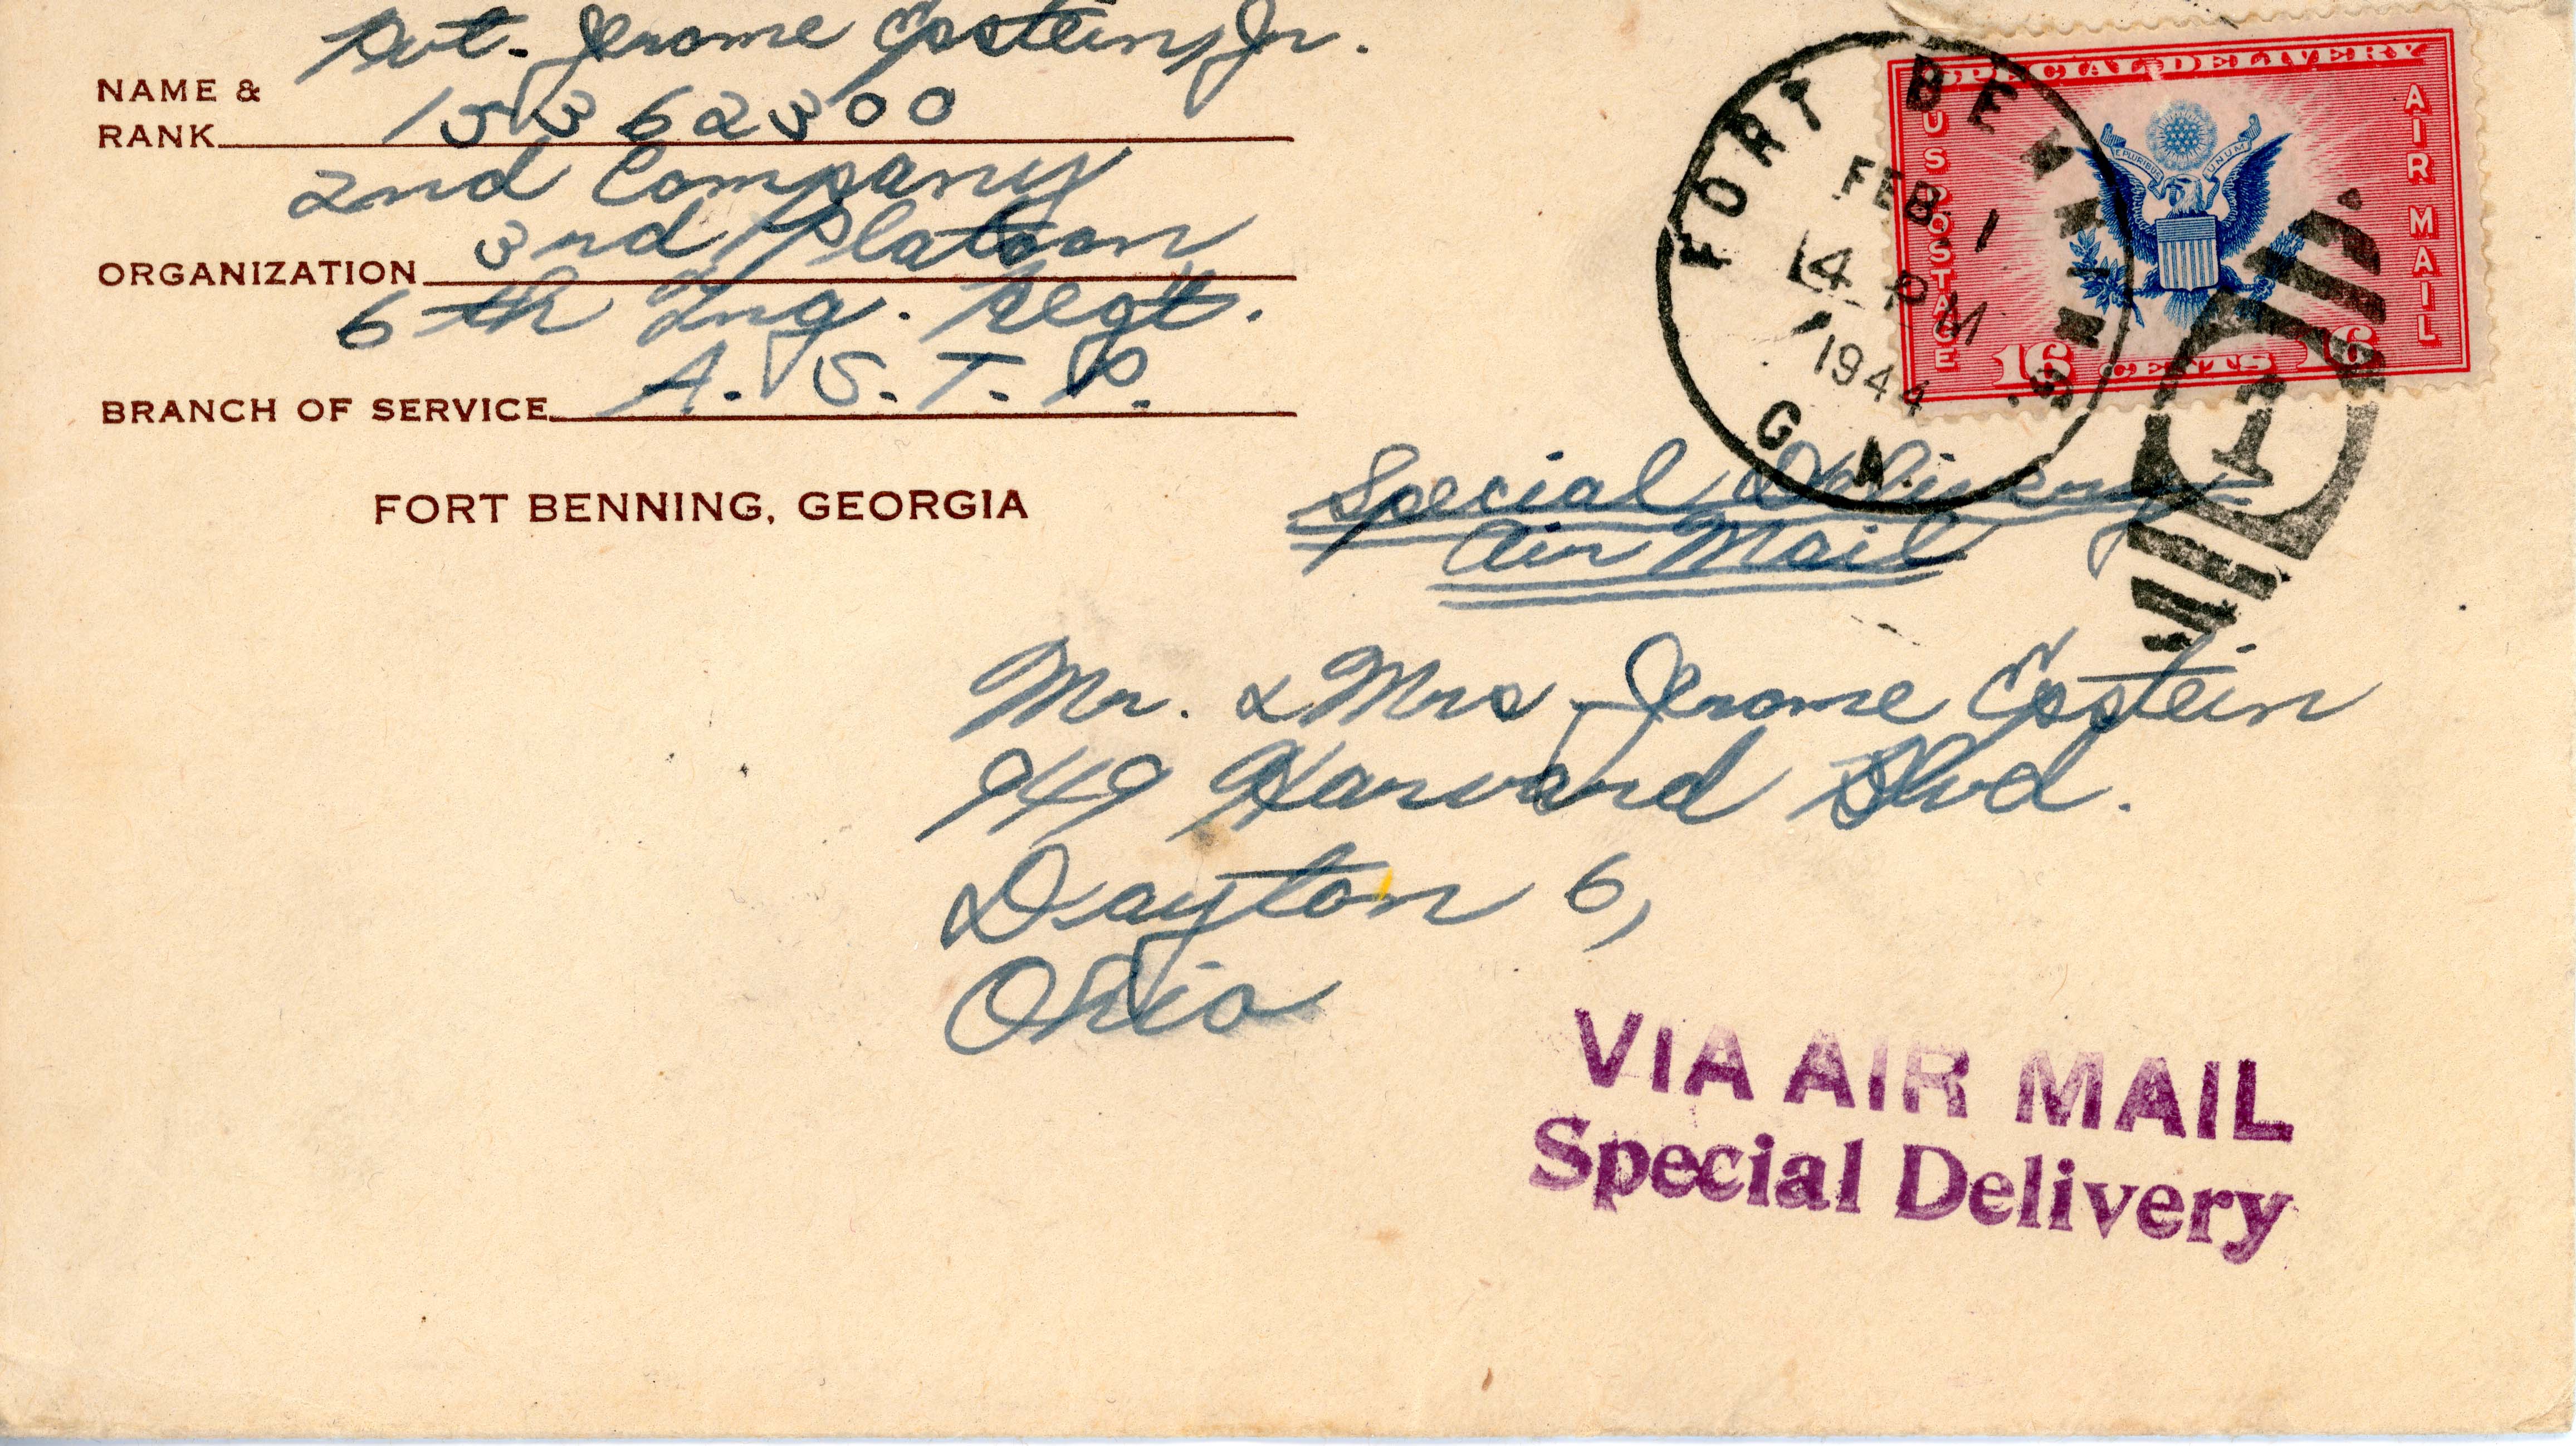 Pvt. Jerome Epstein, Jr.
NAME &
RANK 15362300
2nd Company
ORGANIZATION 3rd Platoon
6th Tng. Regt.
BRANCH OF SERVICE A.S.T.P.
FORT BENNING, GEORGIA
SPECIAL DELIVERY
US POSTAGE
AIR MAIL
E PLURIBUS UNUM
16 CENTS 16
FORT BENNING
FEB 1
4 PM
1944
GA.
1
Special Delivery
Air Mail
Mr. & Mrs. Jerome Epstein
949 Harvard Blvd.
Dayton 6,
Ohio
VIA AIR MAIL
Special Delivery